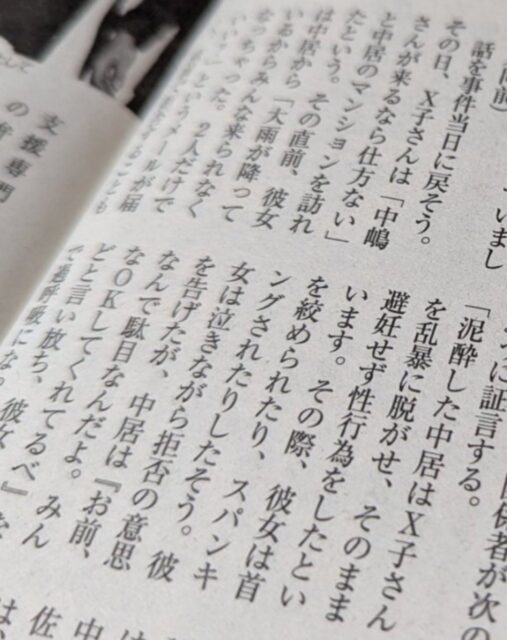 いまし
話を事件当日に戻そう。
その日、X子さんは「中嶋
さんが来るなら仕方ない」
と中居のマンションを訪れ
たという。その直前、彼女
は中居から「大雨が降って
いるからみんな来られなく
なっちゃった。2人だけで
というメールが届
に証言する。
「泥酔した中居はX子さん
を乱暴に脱がせ、そのまま
避妊せず性行為をしたとい
います。その際、彼女は首
を絞められたり、スパンキ
ングされたりしたそう。彼
女は泣きながら拒否の意思
を告げたが、中居は『お前、
なんで駄目なんだよ。みん
なOKしてくれてるべ』な
どと言い放ち、彼女
で過呼吸にな
支援専門
の